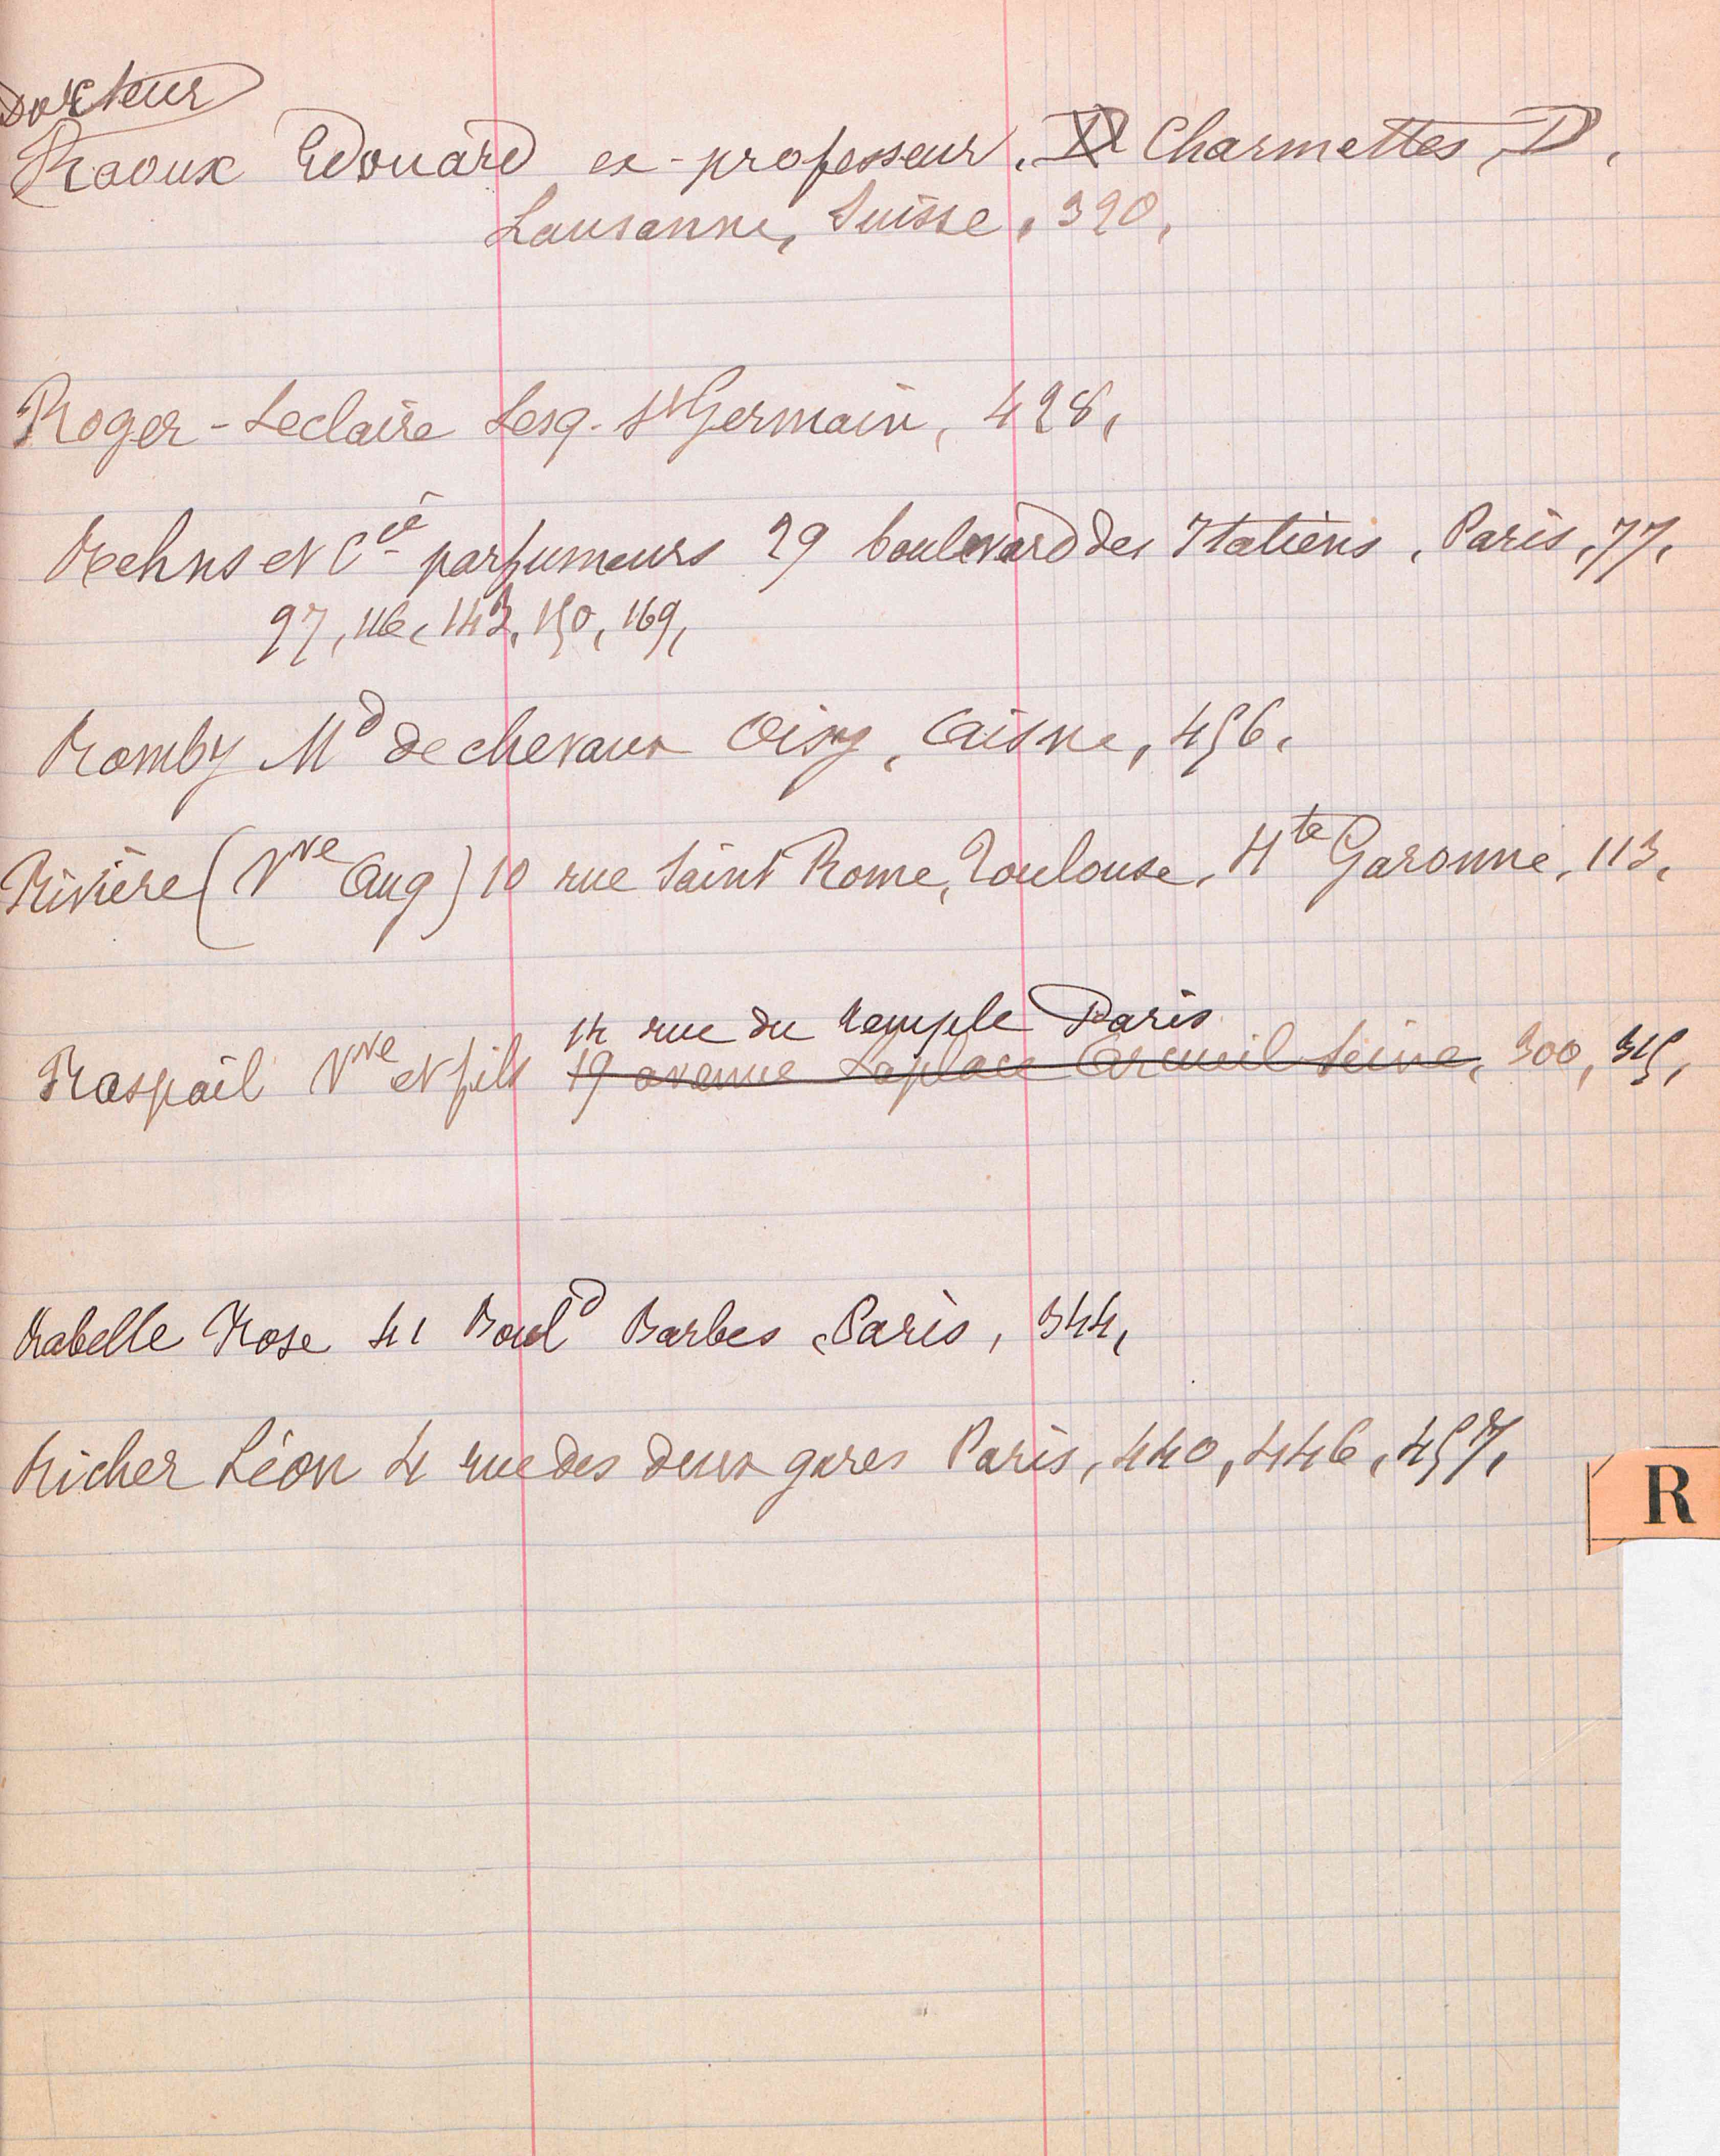 Docteur
Raoux Edouard ex-professeur, Charmettes, D,
Lausanne, Suisse, 390,
Roger-Leclaire Lesq. St Germain, 428,
Rehns et Cie parfumeurs 29 boulevard des Italiens, Paris, 77,
97, 116, 143, 150, 169,
Romby Md de chevaux Oisy, Aisne, 456,
Rivière (Vve Aug) 10 rue Saint Rome, Toulouse, Hte Garonne, 113,
14 rue du Temple Paris
Raspail Vve et fils 19 avenue Laplace Arcueil Seine, 300, 315,
Rabelle Rose 41 Bould Barbes, Paris, 344,
Richer Léon 4 rue des deux gares Paris, 440, 446, 457,
R